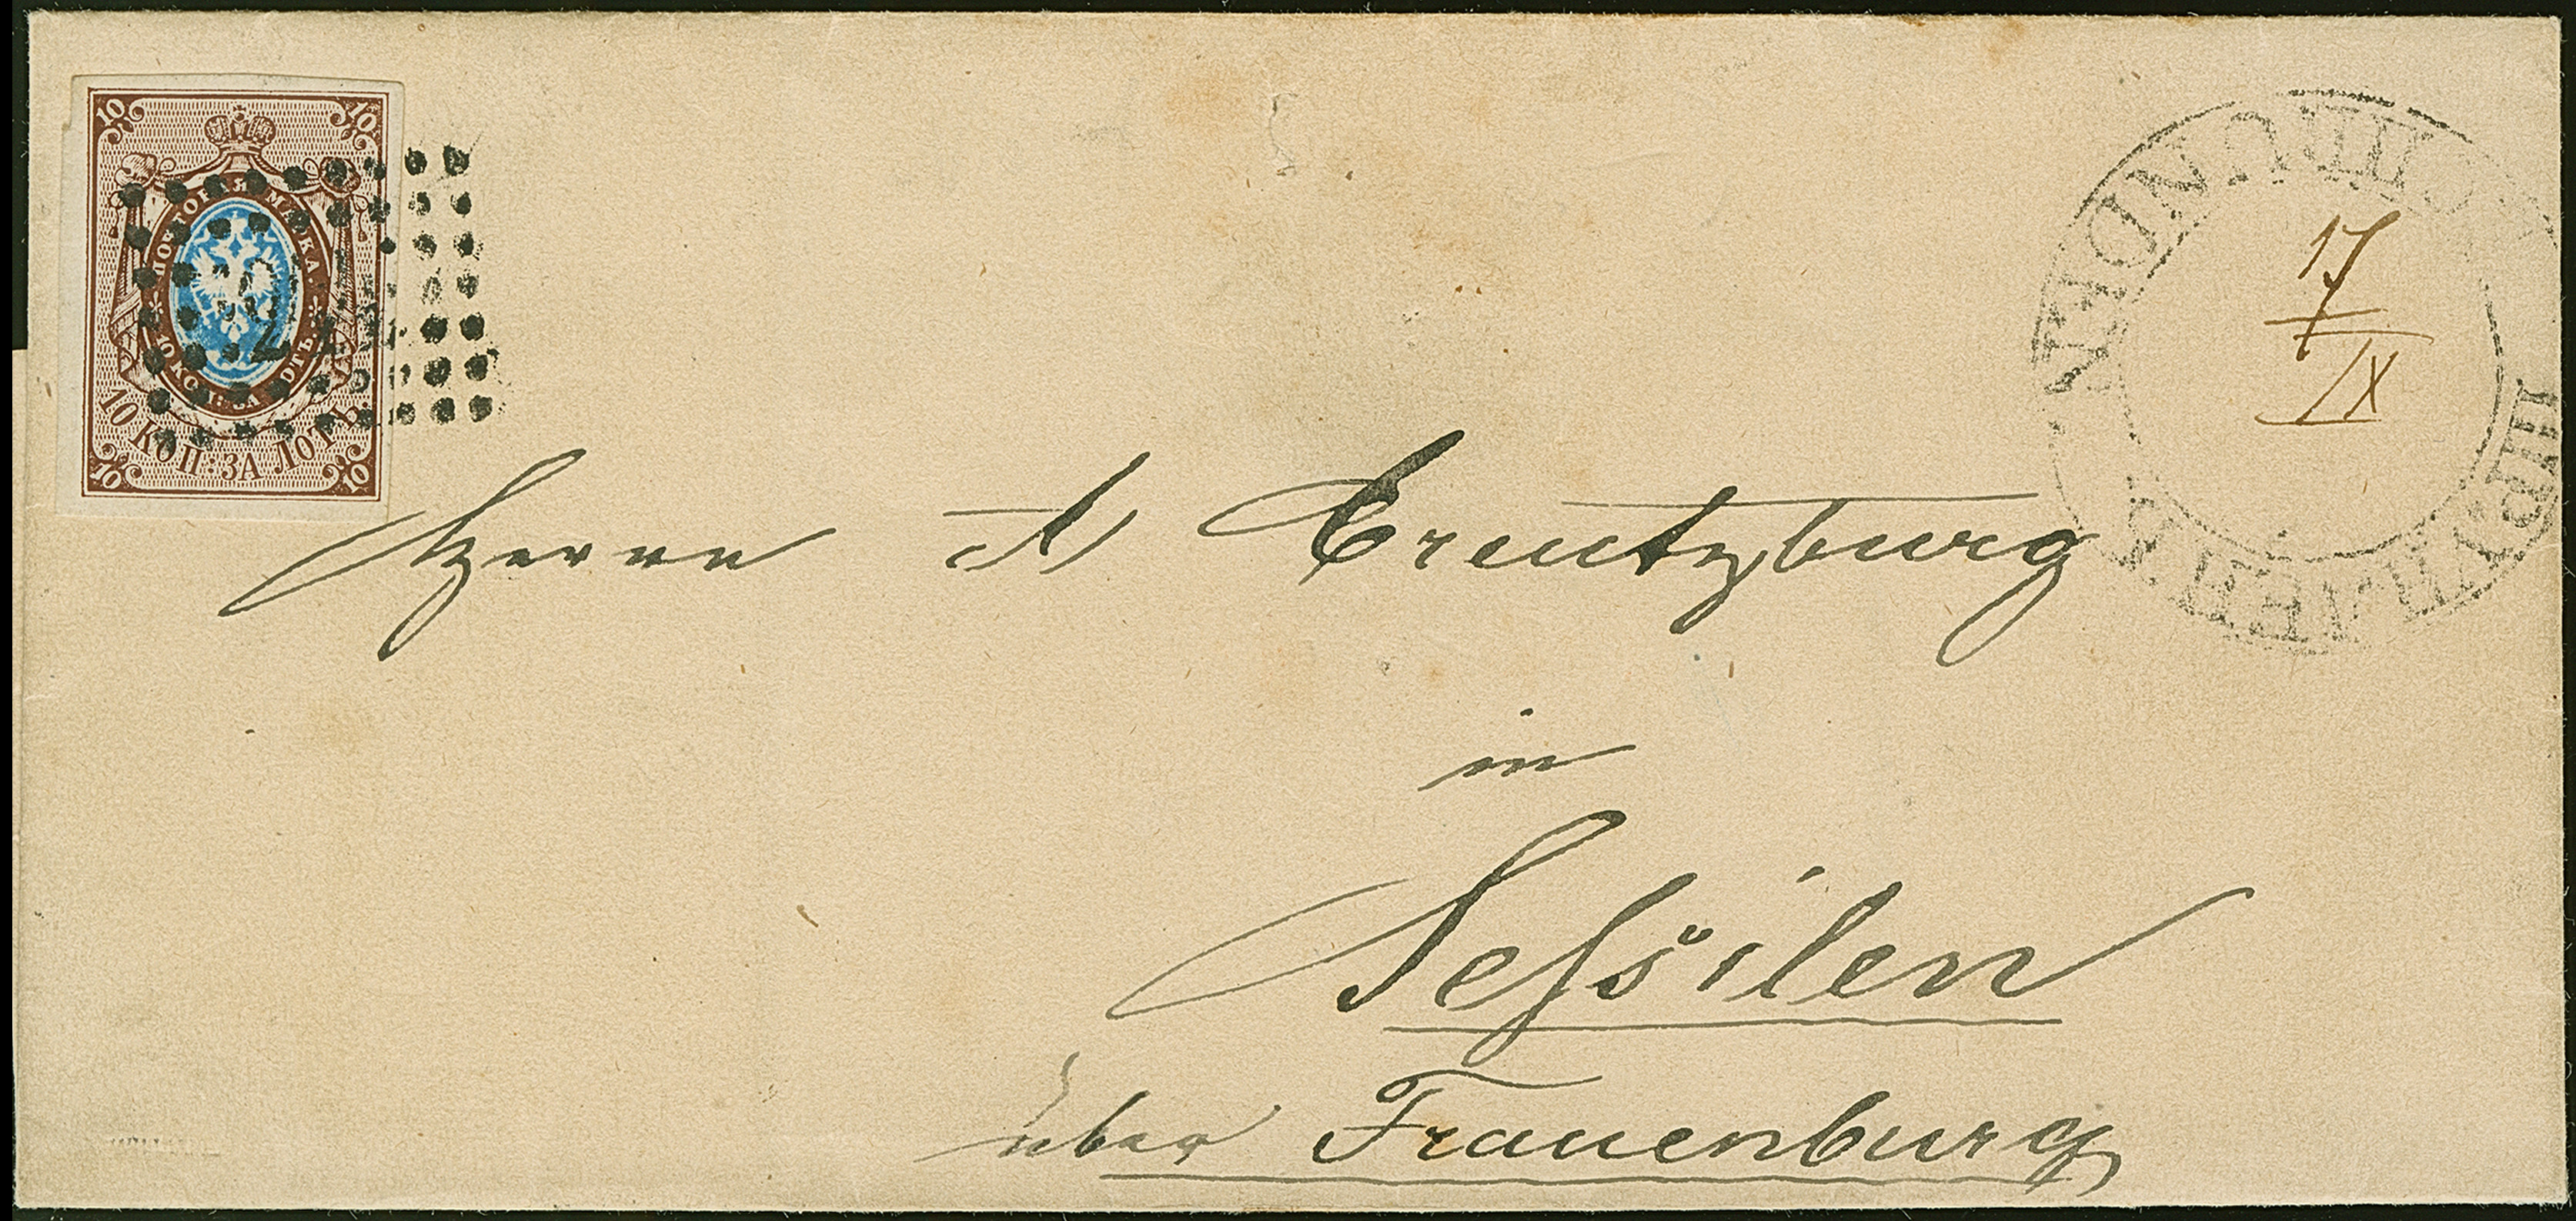 10 10
ПОЧТОВАЯ МАРКА
10 КОП: ЗА ЛОТЪ
10 КОП: ЗА ЛОТЪ.
10 10
17
IX
Herrn A Creutzburg
in
Seßilen
über Frauenburg